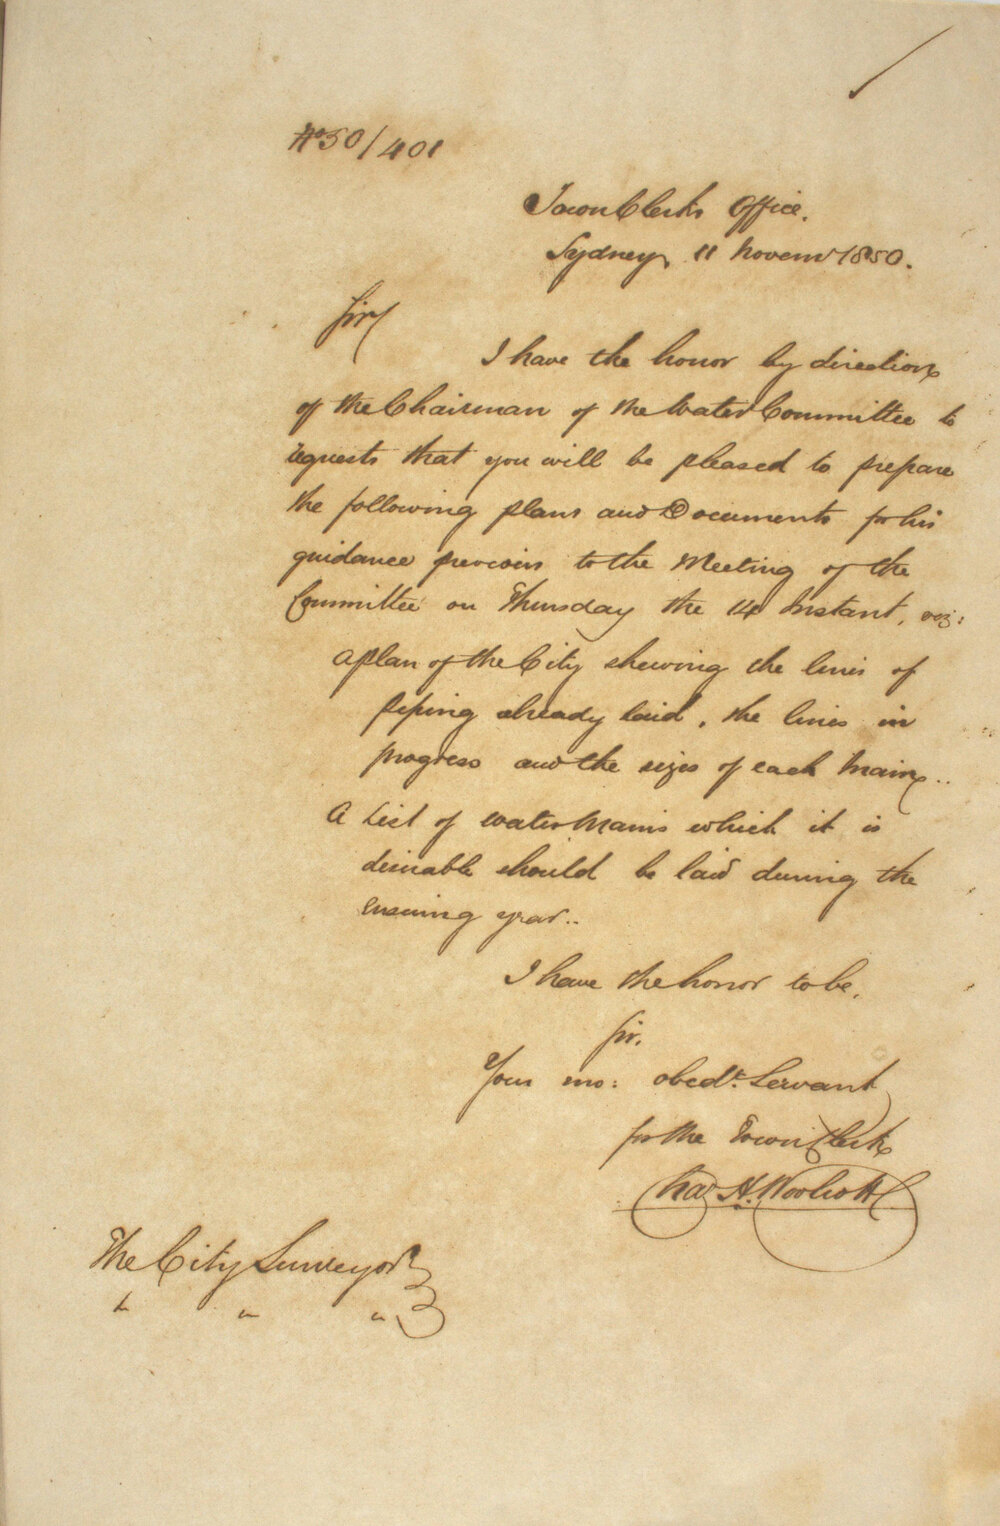 No 50/401
Town Clerks Office.
Sydney, 11 Novemr 1850.
Sir
I have the honor by direction
of the Chairman of the Water Committee to
request that you will be pleased to prepare
the following plans and Documents for his
guidance previous to the Meeting of the
Committee on Thursday the 14 Instant, viz:
A plan of the City shewing the lines of
piping already laid, the lines in
progress and the sizes of each Main..
A List of water Mains which it is
desirable should be laid during the
ensuing year..
I have the honor to be,
Sir,
Your mo: obedt. Servant
for the Town Clerk
Chas H. Woolcott
The City Surveyor
" " "